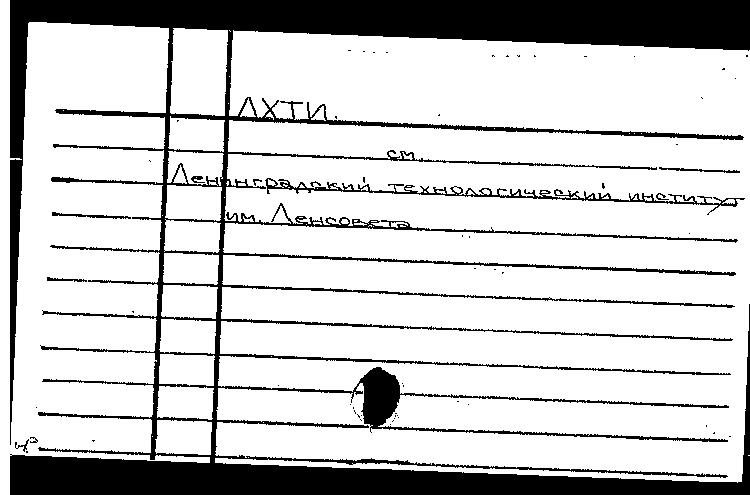 ЛХТИ.
см.
Ленинградский технологический институт
им. Ленсовета